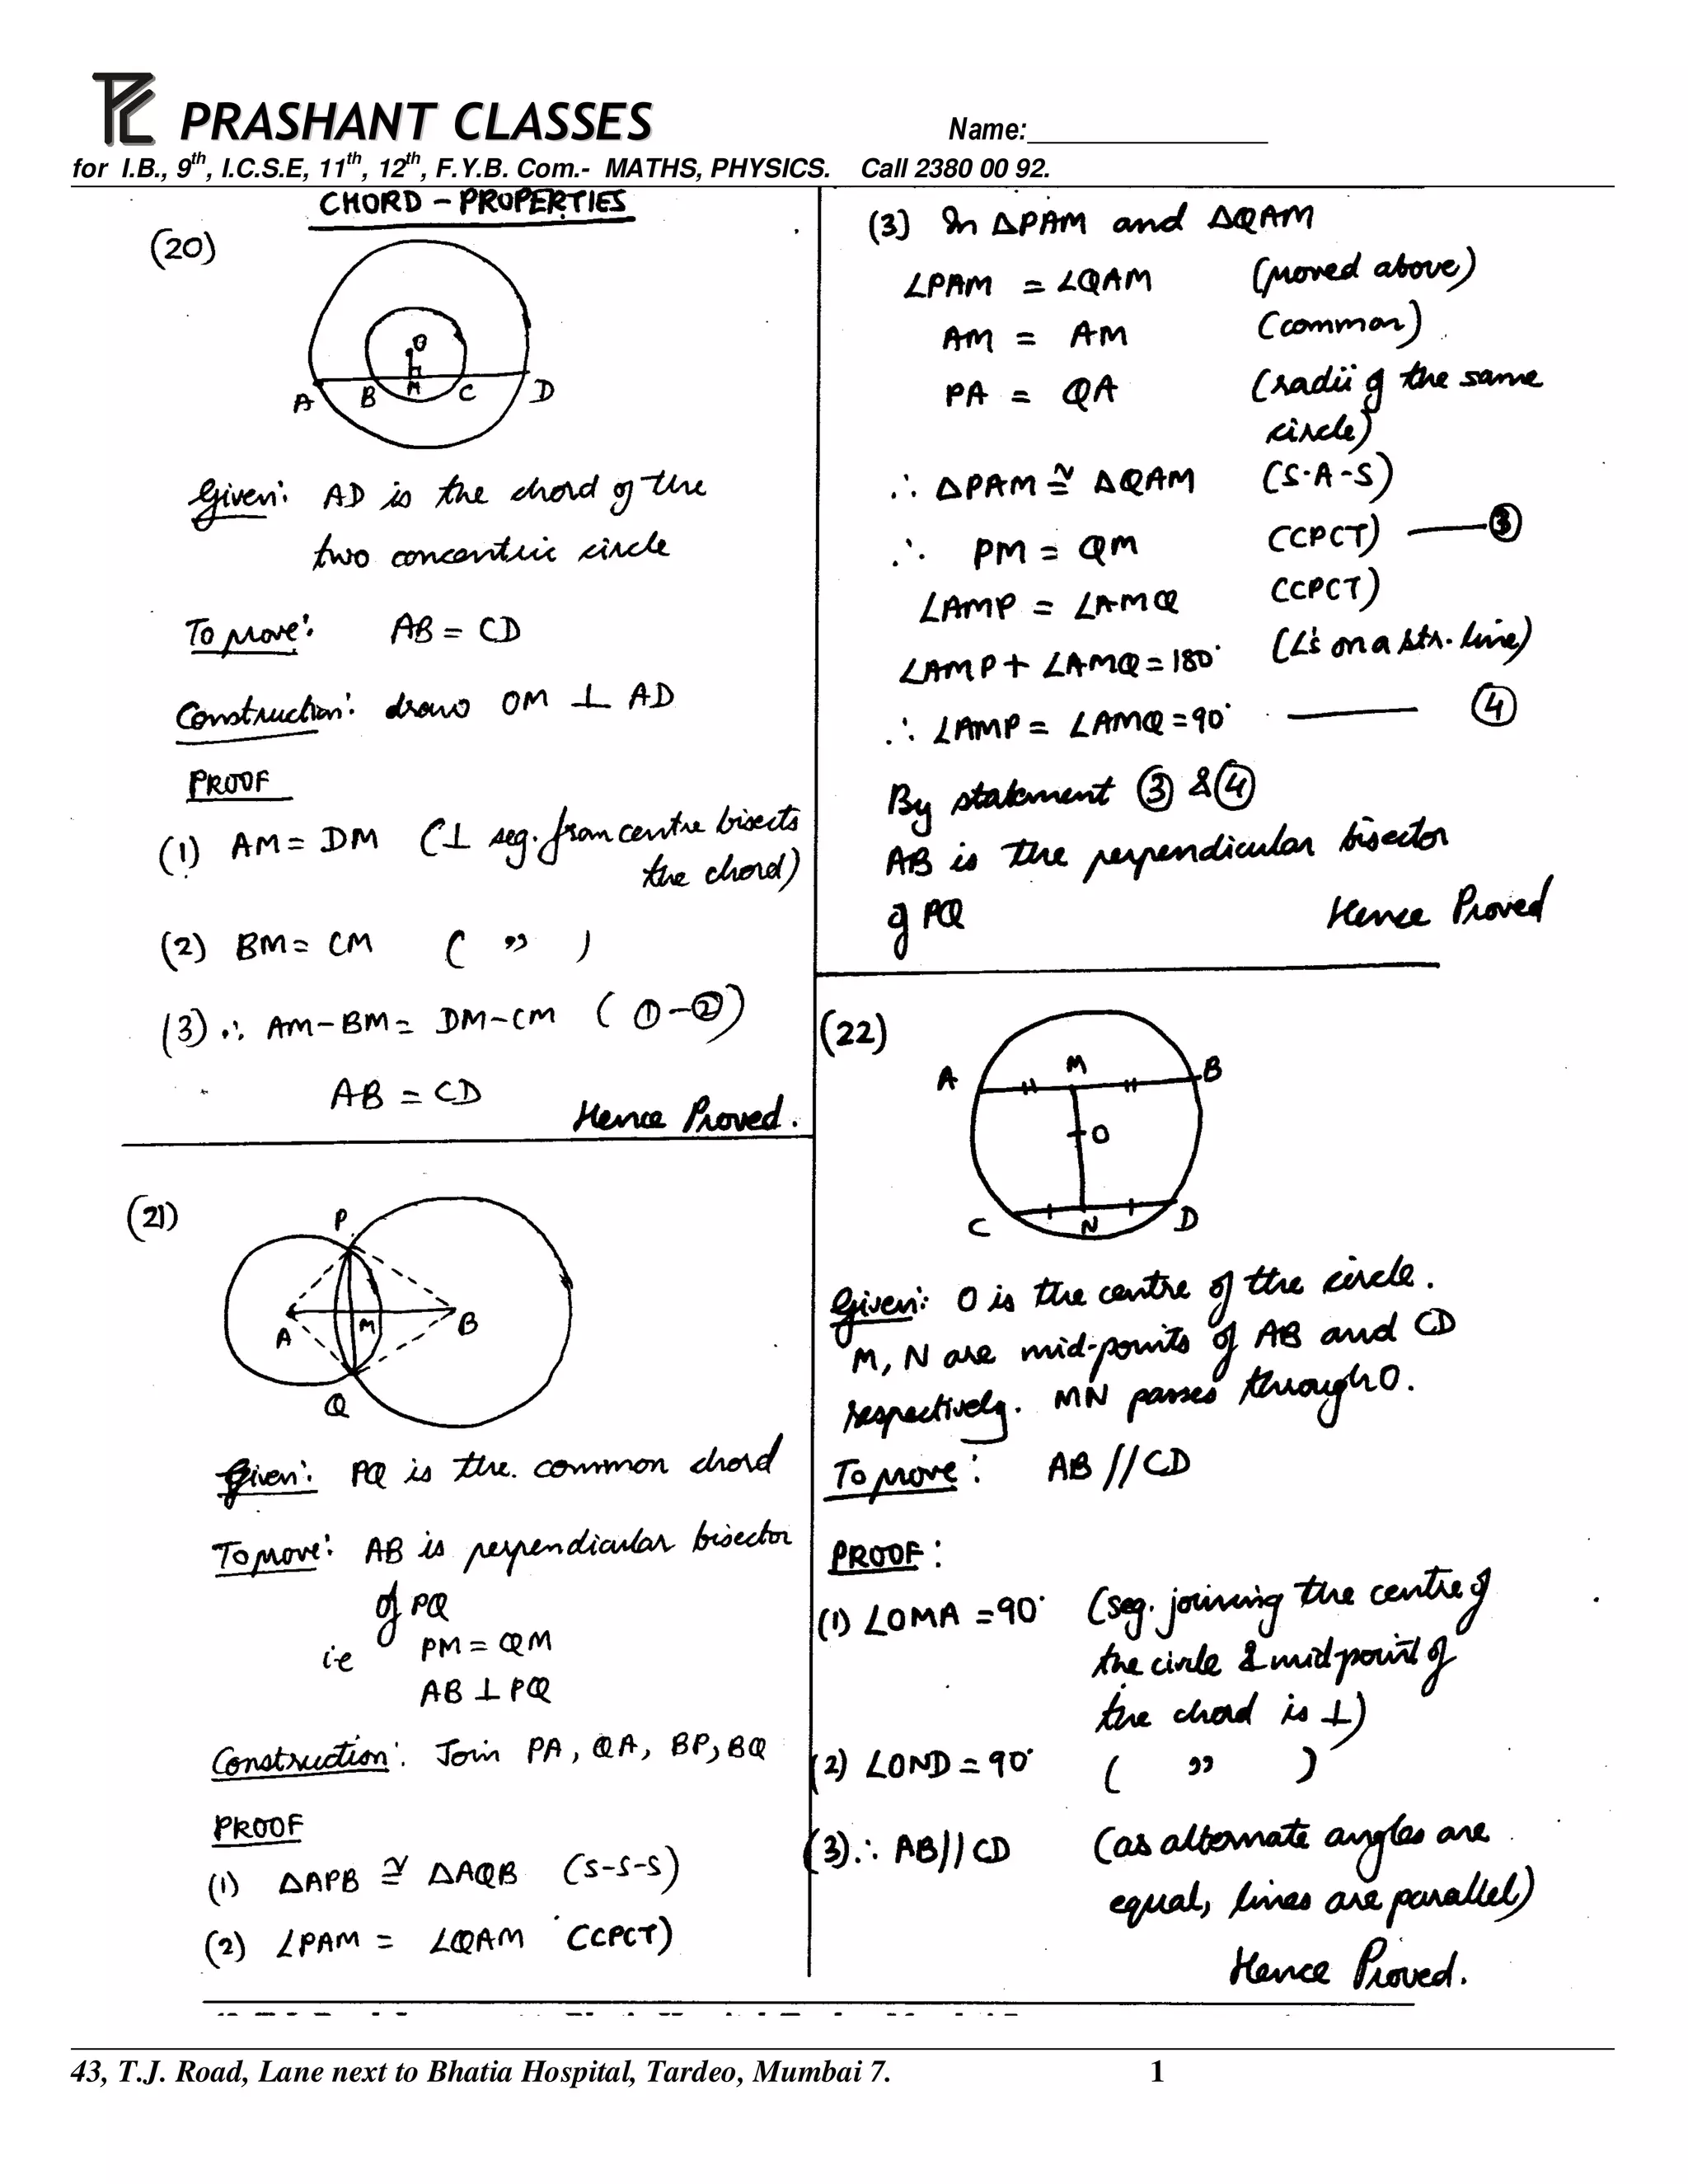 PRASHANT CLASSES
Name:
for I.B., 9th, I.C.S.E, 11th, 12th, F.Y.B. Com.- MATHS, PHYSICS. Call 2380 00 92.
CHORD - PROPERTIES
(20)
O
A B M C D
Given: AD is the chord of the
two concentric circle
To prove: AB = CD
Construction: draw OM ⊥ AD
PROOF
(1) AM = DM (⊥ seg. from centre bisects
the chord)
(2) BM = CM ( " )
(3) ∴ AM-BM = DM-CM ( ①-②)
AB = CD
Hence Proved.
(21)
P
A M B
Q
Given: PQ is the common chord
To prove: AB is perpendicular bisector
of PQ
i.e PM = QM
AB ⊥ PQ
Construction: Join PA, QA, BP, BQ
PROOF
(1) △APB ≅ △AQB (S-S-S)
(2) ∠PAM = ∠QAM CCPCT)
(3) In △PAM and △QAM
∠PAM = ∠QAM (proved above)
AM = AM (common)
PA = QA (radii of the same
circle)
∴ △PAM ≅ △QAM (S-A-S)
∴ PM = QM CCPCT) — ③
∠AMP = ∠AMQ CCPCT)
∠AMP + ∠AMQ = 180° (∠'s on a str. line)
∴ ∠AMP = ∠AMQ = 90° — ④
By statement ③ & ④
AB is the perpendicular bisector
of PQ Hence Proved
(22)
A M B
O
C N D
Given: O is the centre of the circle.
M, N are mid-points of AB and CD
respectively. MN passes through O.
To prove: AB // CD
PROOF:
(1) ∠OMA = 90° (seg. joining the centre of
the circle & midpoint of
the chord is ⊥)
(2) ∠OND = 90° ( " )
(3) ∴ AB // CD (as alternate angles are
equal, lines are parallel)
Hence Proved.
43, T.J. Road, Lane next to Bhatia Hospital, Tardeo, Mumbai 7. 1